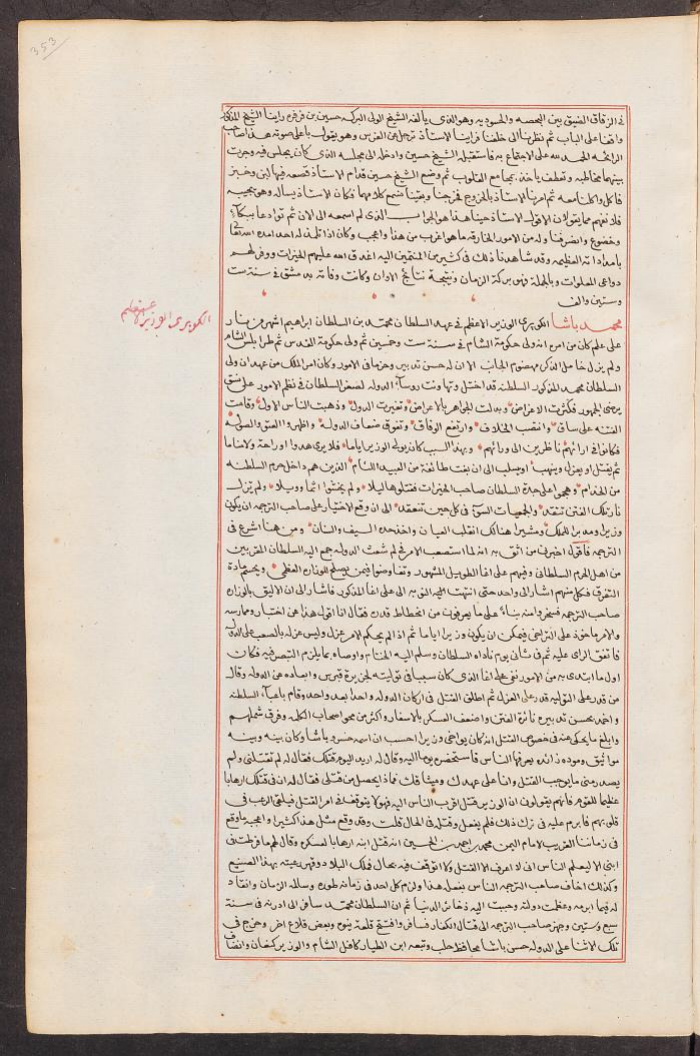 353
في الزقاق الضيق بين البحصه والحسوديه وهو الذي يألفه الشيخ الولي البركه حسين بن فرفره راينا الشيخ المذكور
واقفا على الباب ثم نظر الى خلفنا فراينا الاستاذ ترجل عن الفرس وهو يقول باعلى صوته هذا صاحب
الرائحه الحمد لله على الاجتماع به فاستقبله الشيخ حسين وادخله الى مجلسه الذي كان يجلس فيه وجرت
بينهما مخاطبه وتعطف ياخذ بمجامع القلوب ثم وضع الشيخ حسين قدام الاستاذ قصعه فيها لبن وخبز
فاكل واكلنا معه ثم امرنا الاستاذ بالخروج فخرجنا وبقينا نسمع كلامهما فكان الاستاذ يساله وهو يجيبه
فلا نفهم مما يقولان الا قول الاستاذ حينا هذا هو الجواب الذي لم اسمعه الى الان ثم توادعا ببكاء
وخضوع وانصرفنا وله من الامور الخارقه ما هو اغرب من هذا واعجب وكان اذا تلف له احد امده الله تعالى
بامداداته العظيمه وقد شاهدنا ذلك في كثير من المنتمين اليه اغدق الله عليهم الخيرات ووفر لهم
دواعي المعلومات وبالجملة فهو بركة الزمان ونتيجة نتائج الاوان وكانت وفاته بدمشق في سنة ست
وستين والف
محمد باشا الكوبري الوزير الاعظم في عهد السلطان محمد بن السلطان ابراهيم اشهر من نار
على علم كان من امره انه ولي حكومة الشام في سنة ست وخمسين ثم ولي حكومة القدس ثم طرابلس الشام
ولم يزل خامل الذكر مهضوم الجانب الا ان له حسن تدبير وحزما في الامور وكان امر الملك من عهد ان ولي
السلطان محمد المذكور السلطنه قد اختل وتهاونت روسآء الدوله لصغر السلطان في نظم الامور على نسق
يرضى الجمهور فكثرت الاغراض وبدلت الجواهر بالاعراض وتغيرت الدول وذهبت الناس الاول وقامت
الفتنه على ساق وانتصب الخلاف وارتفع الوفاق وتفوق ضعاف الدولة واظهروا العتو والصوله
فكانوا في ارائهم ناظرين الى ورائهم وبهذا السبب كان يولى الوزير اياما فلا يرى هدوا وراحة ولا مناما
ثم يقتل او يعزل وينهب او يسلب الى ان بغت طائفة من العبيد الشام الذين هم داخل حرم السلطنه
من الخدام وهجموا على جدة السلطان صاحب الخيرات فقتلوها ليلا ولم يخشوا اثما وويلا ولم تزل
نار تلك الفتن تتقد والجمعيات السوء في كل حين تنعقد الى ان وقع الاختيار على صاحب الترجمه ان يكون
وزيرا ومدبرا للملك ومشيرا هنالك انقلب العيان واخذ حده السيف والسنان ومن هنا اشرع في
الترجمه فاقول اخبرني من اثق به انه لما استصعب الامر في لم شعث الدوله جمع اليه السلطان المقربين
من اهل الحرم السلطاني وفيهم على اغا الطويل المشهور وتفاوضوا فيمن يصلح للوزاره العظمى ويحسم مادة
التفرق فكل منهم اشار الى واحد حتى انتهت النوبه به الى على اغا المذكور فاشار الى ان الاليق بالوزاره
صاحب الترجمه فسخروا منه بناء على ما يعرفون من انحطاط قدره فقال انا اقول هذا عن اختبار وممارسه
والامر ماخوذ على التراخي فيمكن ان يكون وزيرا اياما ثم اذا لم يحكم الامر عزل وليس عزله بالصعب على الدوله
فاتفق الراي عليه ثم في ثاني يوم ناداه السلطان وسلم اليه الختام واوصاه بما يلزم التبصر فيه فكان
اول ما ابتدى به من الامور نفي على اغا الذي كان سببا في توليته لجزيرة قبرس وابعاده عن الدوله وقال
من قدر على التوليه قدر على العزل ثم اطلق القتل في اركان الدوله واحدا بعد واحد وقام باعبآء السلطنه
واخمد بحسن تدبيره نائرة الفتن واضعف العسكر بالاسفار واكثر من محو اصحاب الكلمه وفرق شملهم
وابلغ ما يحكى عنه في خصوص القتل انه كان يواخي وزيرا احسب ان اسمه خسرو باشا وكان بينه وبينه
مواثيق وموده زائده يعرفها الناس فاستحضره يوما اليه وقال له اريد اليوم قتلك فقال له لم تقتلني ولم
يصدر مني ما يوجب القتل وانا على عهدك وميثاقك فماذا يحصل من قتلي فقال له ان في قتلك ارهابا
عظيما للقوم فانهم يقولون ان الوزير قتل اقرب الناس اليه فهو لا يتوقف في امر القتل فيلقى الرعب في
قلوبهم فابرم عليه في ترك ذلك فلم يفعل وقتله في الحال قلت وقد وقع مثل هذا كثيرا واعجبه ما وقع
في زماننا القريب لامام اليمن محمد بن احمد بن الحسين انه قتل ابنه ارهابا لعسكره وقال لهم ما فرطت في
ابني الا ليعلم الناس اني لا اعرف الا القتل ولا اتوقف فيه بحال فملك البلاد وقهر رعيته بهذا الصنيع
وكذلك اخاف صاحب الترجمه الناس بفعل هذا ولزم كل احد في زمانه طوره وسالمه الزمان وانقاد
له فيما ابرمه وعظمت دولته وجبيت اليه ذخائر الدنيا ثم ان السلطان محمد سافر الى ادرنه في سنة
سبع وستين وجهز صاحب الترجمه الى قتال الكفار فسافر وافتتح قلعة ينوه وبعض قلاع اخر وخرج في
تلك الاثنا على الدوله حسن باشا محافظ حلب وتبعه ابن الطيار كافل الشام والوزير كنعان وانضاف
الكوبري الوزير الاعظم